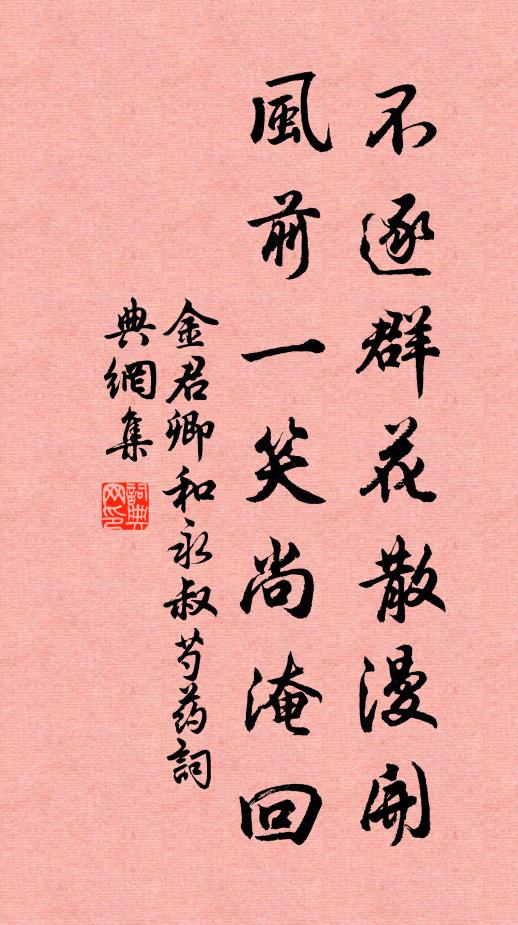 不逐群花散漫開
風前一笑尚淹回
金君卿和永叔芍药詞
典網集
詞典网印